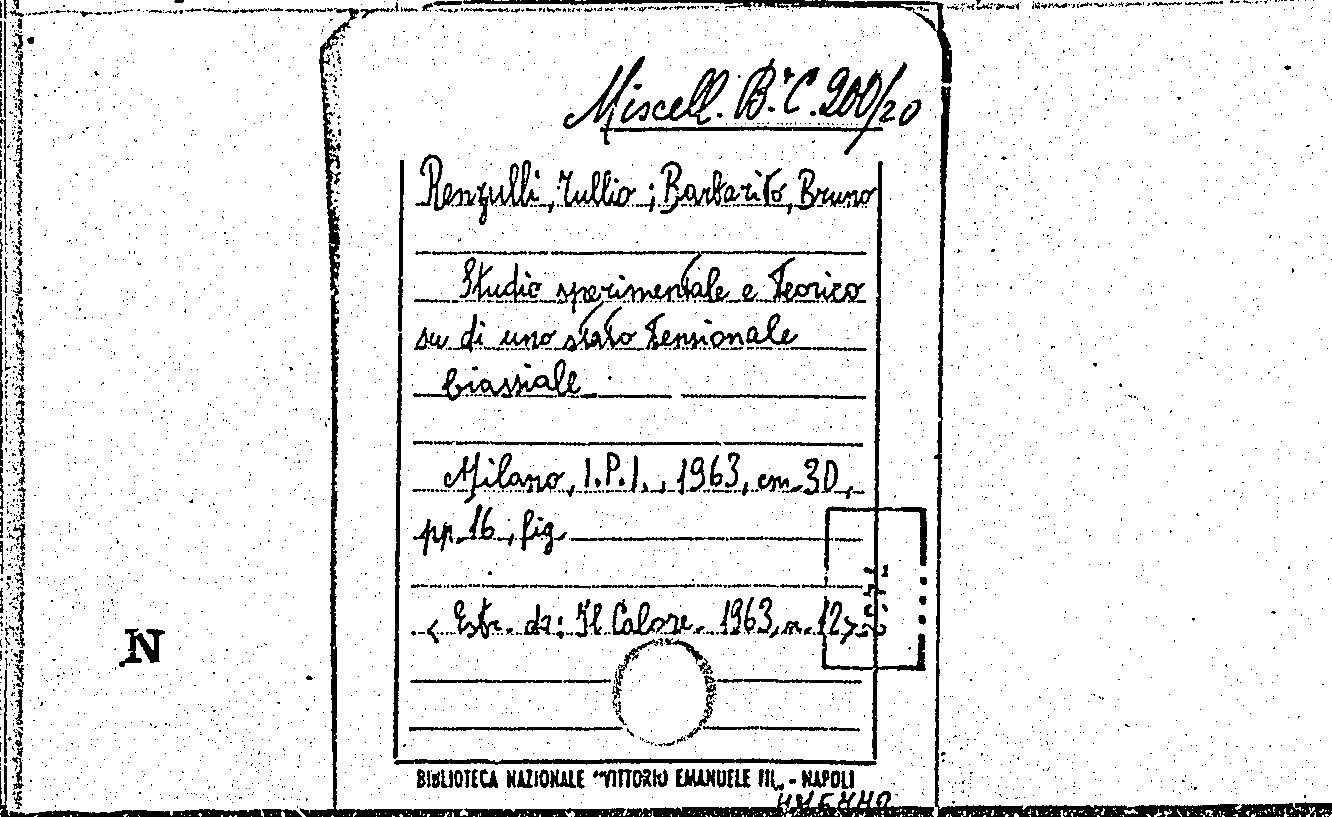 Miscell. B. C. 200/20
Renzulli, Tullio ; Barbarito, Bruno
Studio sperimentale e Teorico
su di uno stato Tensionale
biassiale
Milano, I.P.I., 1963, cm. 30,
pp. 16, fig.
< Estr. da: Il Calore. 1963, n. 12>
N
BIBLIOTECA NAZIONALE "VITTORIO EMANUELE III„ - NAPOLI